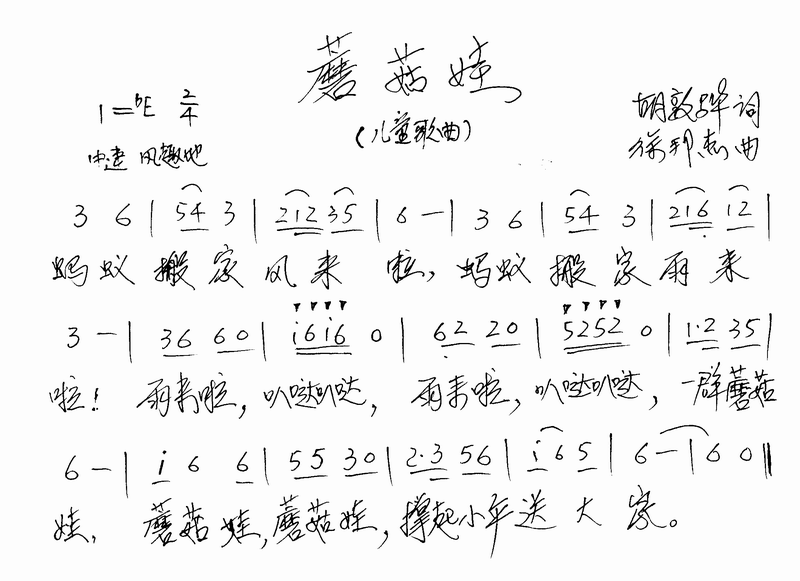 蘑菇娃
1=♭E 2/4
(儿童歌曲)
胡敦骅 词
中速 风趣地
徐邦杰 曲
3 6 | 54 3 | 212 35 | 6 — | 3 6 | 54 3 | 216 12 |
蚂蚁搬家风来啦，蚂蚁搬家雨来
3 — | 36 60 | i6i6 0 | 62 20 | 5252 0 | 1·2 35 |
啦！雨来啦，叭哒叭哒，雨来啦，叭哒叭哒，一群蘑菇
6 — | i 6 6 | 55 30 | 2·3 56 | i6 5 | 6 — | 6 0 ‖
娃，蘑菇娃，蘑菇娃，撑起小伞送大家。